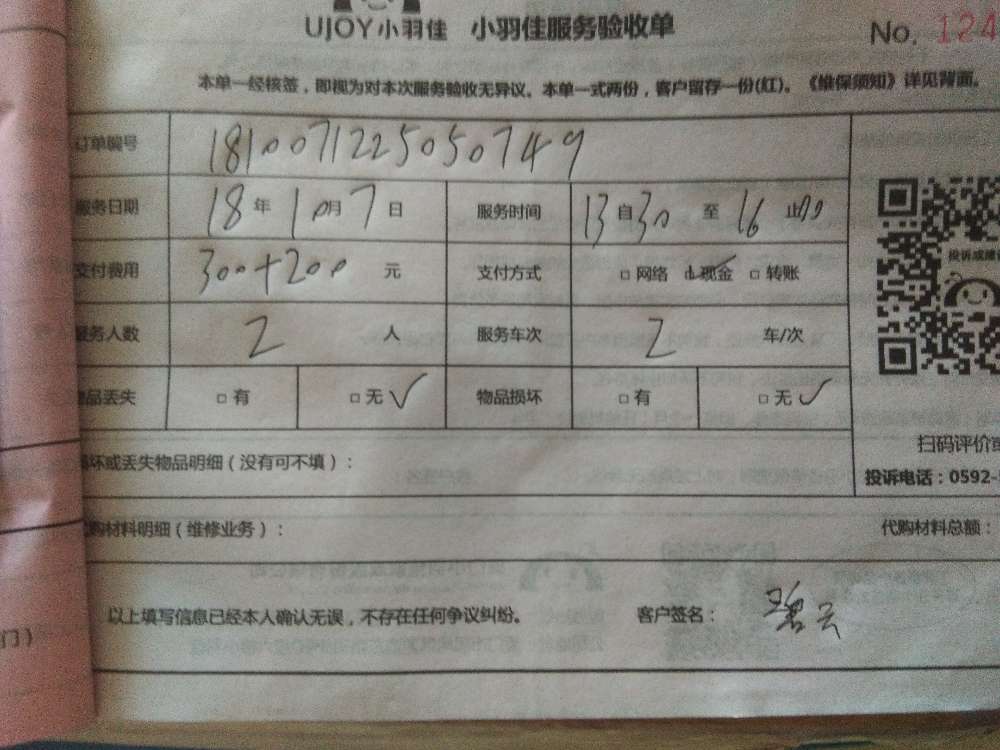 UJOY小羽佳 小羽佳服务验收单
No. 124
本单一经核签，即视为对本次服务验收无异议。本单一式两份，客户留存一份(红)。《维保须知》详见背面。
订单编号 1810071225050749
服务日期 18年10月7日 服务时间 13自30至16止00
投诉或建议
支付费用 300+200元 支付方式 □网络 ☑现金 □转账
服务人数 2人 服务车次 2车/次
物品丢失 □有 □无✓ 物品损坏 □有 □无✓
扫码评价或
损坏或丢失物品明细（没有可不填）：
投诉电话：0592-
代购材料明细（维修业务）： 代购材料总额：
以上填写信息已经本人确认无误，不存在任何争议纠纷。 客户签名：王碧云
门）